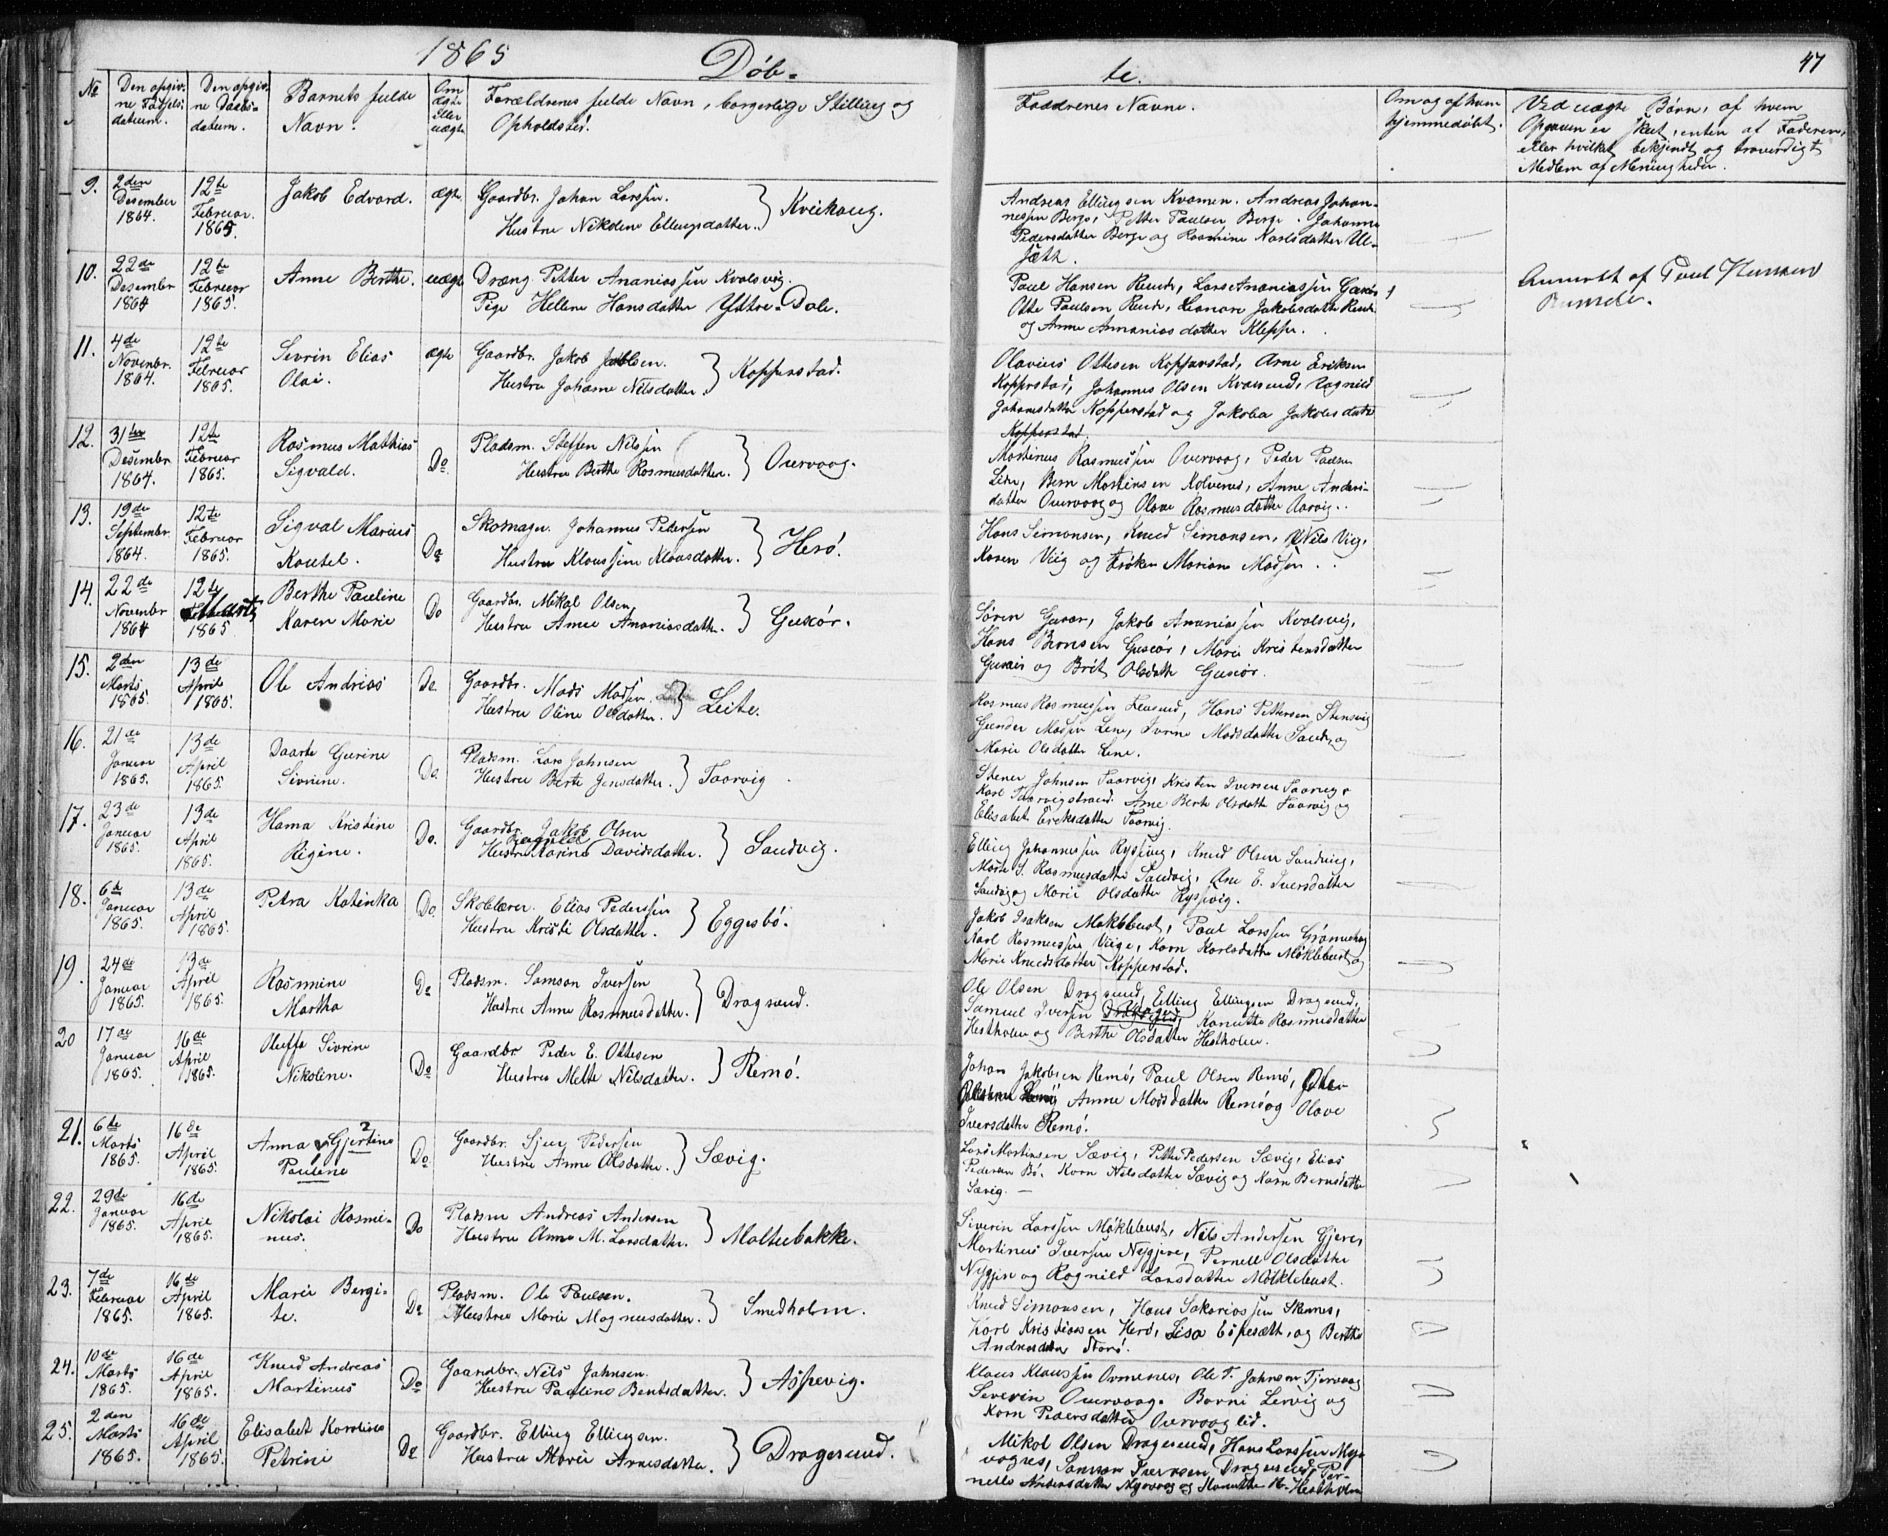 1865
Døb-
te.
47
№
Den opgiv-
ne Fødsels-
datum.
Den opgiv-
ne Daabs-
datum.
Barnets fulde
Navn.
Om
ægte
eller
uægte
Forældrenes fulde Navn, borgerlige Stilling og
Opholdsted.
Faddrenes Navne.
Om og af hvem
hjemmedøbt.
Ved uægte Børn, af hvem
Opgaven er skeet, enten af Faderen,
eller hvilket bekjendt og troværdigt
Medlem af Menigheden.
9.
2den
Desember
1864.
12te
Februar.
1865.
Jakob Edvard.
ægte.
Gaardbr. Johan Larssen.
Hustru Nikoline Ellingsdatter.
Kvikaug.
Andreas Ellingsen Kvamen. Andreas Johan-
nessen Berge, Petter Paulsen Berge. Johanne
Pedersdatter Berge og Rasmine Karlsdatter Ul-
sæth.
10.
22de
Desember
1864
12te
Februar
1865.
Anne Berthe.
uægte
Dræng. Petter Ananiassen Kvalsvig.
Pige Hellene Hansdatter Yttre-Dale.
Paul Hansen Runde, Lars Ananiassen
Otte Paulsen Runde, Jakobsdatter Runde
og Anne Annaniasdatter Kleppe.
Anmeldt af Paul Hansen
Runde.
11.
4de
Novenbr.
1864.
12te
Februar
1865.
Sevrin Elias
Olai.
ægte
Gaardbr. Jakob
Hustru Johanne Nilsdatter.
Kopperstad.
Olavius Ottesen Kopperstad, Arne Eriksen
Kopperstad, Johannes Olsen Ragnild
Johansdatter Kopperstad og Jakoba Jakobsdatter
Kopperstad.
12.
31te
Desember
1864.
12te
Februar
1865.
Rasmus Mathias
Sigvald.
Do.
Pladsm. Steffen Nilssen
Hustru Berthe Rasmusdatter.
Overvaag.
Martinus Rasmussen Overvaag, Peder
Bern Martinsen Kolverud, Anne Anders-
datter Overvaag og Olave Rasmusdatter
13.
19de
September
1864.
12te
Februar
1865.
Sigval Marius
Do
Skomager. Johannes Pedersen
Hustru Klaussine Klausdatter.
Herø.
Hans Simonsen, Knud Simonsen, Nils Viig,
Karen Viig og Frøken Mariane Madsen
14.
22de
Novenbr
1864
12te
Marts
1865
Berthe Pauline
Karen Marie
Do
Gaardbr. Mikal Olsen
Hustru Anne Ananiasdatter.
Gurskør.
Søren Jakob Ananiassen Kvalsvig,
Hans Berntsen Marie Kristensdatter
og Brit Olsdatter
15.
2den
Marts
1865.
13de
April
1865.
Ole Andrias
Do.
Gaardbr. Mads Madsen
Hustru Oline Olsdatter.
Leite.
Rasmus Rasmussen Hans Pettersen Stensvig
Gunder Madsen Leine, Madsdatter Sande, og
Marie Olsdatter Leine.
16.
21de
Januar
1865.
13de
April
1865.
Daarte Gurine
Sivrine.
Do.
Pladsm. Lars Johnsen
Hustru Berte Jensdatter.
Taarvig
Stener Johnsen Taarvig, Kristen Iversen Taarvig
Karl Taarvigstrand. Ane Berte Olsdatter Taarvig og
Elisabet Eriksdatter Taarvig.
17.
23de
Januar
1865.
13de
April
1865.
Hanna Kristine
Regine.
Do.
Gaardbr. Jakob Olsen
Ragnild
Hustru Karine Davidsdatter.
Sandvig.
Elling Johannessen Rypsvig, Knud Olsen Sandvig,
S. Rasmusdatter Sandvig, Ane E. Iversdatter
Sandvig og Marie Olsdatter Rypsvig.
18.
6te
Januar
1865.
13de
April
1865.
Petra Katinka
Do.
Skolelærer. Elias Pederssen
Hustru Kristi Olsdatter.
Eggesbø.
Jakob Isaksen Møklebust, Paul Larssen Grønnehag
Karl Rasmussen Viige, Karn Karlsdatter Møklebust og
Marie Knudsdatter Kopperstad.
19.
24de
Januar
1865.
13de
April
1865.
Rasmine
Martha
Do
Pladsm. Samson Iversen
Hustru Anne Rasmusdatter.
Dragsund.
Ole Olsen Dragsund, Elling Ellingsen Dragsund,
Samuel Iversen Rasmusdatter
Hestholm og Berthe Olsdatter Hestholm.
20
17de
Januar
1865.
16de
April
1865.
Oluffe Sivrine
Nikoline.
Do
Gaardbr Peder E. Ottesen
Hustru Mette Nilsdatter.
Remø.
Johan Jakobsen Remø, Paul Olsen Remø,
Anne Madsdatter Remø og Olave
Iversdatter Remø.
21.
6te
Marts
1865.
16de
April
1865.
Anna Gjertine
Pauline
Do
Gaardbr. Sjur Pedersen
Hustru Anne Olsdatter.
Sævig.
Lars Martinsen Sævig, Petter Pedersen Sævig, Elias
Pedersen Bø. Karn Nilsdatter Sævig og Karn Berntsdatter
Sævig.
22.
29de
Januar
1865.
16de
April
1865.
Nikolai Rasmi-
nus.
Do
Pladsm Andreas Andersen
Hustru Anne M. Larsdatter.
Moltubakke.
Siverin Larssen Møklebust, Nils Andersen Gjere,
Martinus Iversen Nygjere, Pernell Olsdatter
Nygjere og Ragnild Larsdatter Møklebust.
23.
7de
Februar
1865.
16de
April
1865.
Marie Bergi-
te.
Do
Pladsm. Ole Paulsen.
Hustru Marie Magnusdatter.
Smedholm.
Knud Simonsen, Hans Sakariassen Skinnes,
Karl Kristiansen Herø, Lisa Espesæth, og Berthe
Andreasdatter Storø.
24.
10de
Marts
1865.
16de
April
1865.
Knud Andreas
Martinus
Do
Gaardbr. Nils Johnsen.
Hustru Pauline Berntsdatter.
Aspevig.
Klaus Klaussen Ormenes, Ole T. Johnsen Tjervaag
Severin Overvaag. Barni Lervig og
Karn Pedersdatter Overvaaglid.
25.
2den
Marts
1865.
16de
April
1865.
Elisabet Karoline
Petrine
Do
Gaardbr. Elling Ellingsen.
Hustru Marie Arnesdatter.
Dragesund.
Mikal Olsen Dragesund, Hans Larssen Myr-
vogres, Samson Iversen, Dragesund, Per-
nelle Andersdatter Myrvaag og Hestholm